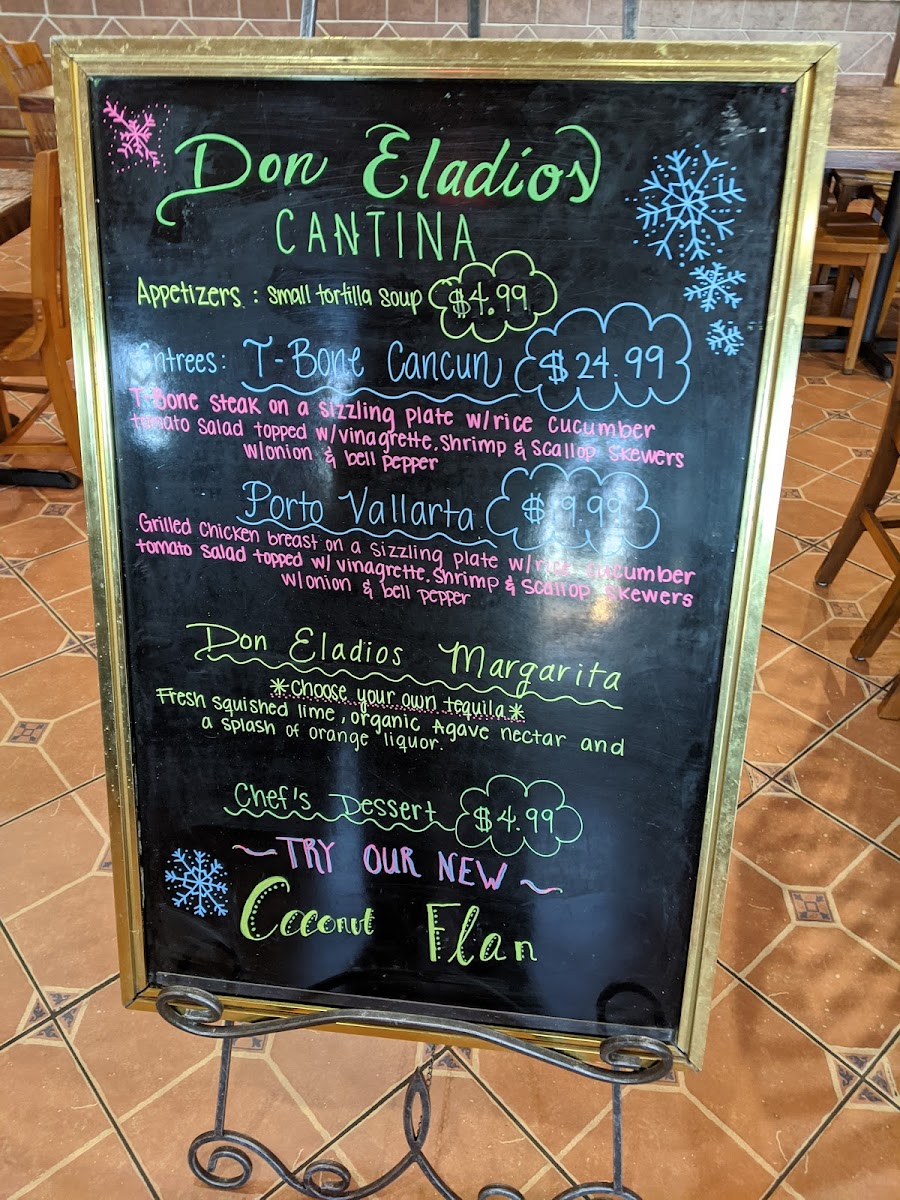 Don Eladios
CANTINA
Appetizers : small tortilla soup $4.99
Entrees: T-Bone Cancun $24.99
T-Bone steak on a sizzling plate w/rice cucumber
tomato salad topped w/vinagrette. shrimp & scallop skewers
w/onion & bell pepper
Porto Vallarta
Grilled chicken breast on a sizzling plate w/rice cucumber
tomato salad topped w/ vinagrette. shrimp & scallop skewers
w/onion & bell pepper
Don Eladios Margarita
*choose your own tequila*
Fresh squished lime, organic Agave nectar and
a splash of orange liquor.
Chef's Dessert $4.99
~TRY OUR NEW~
Coconut Flan